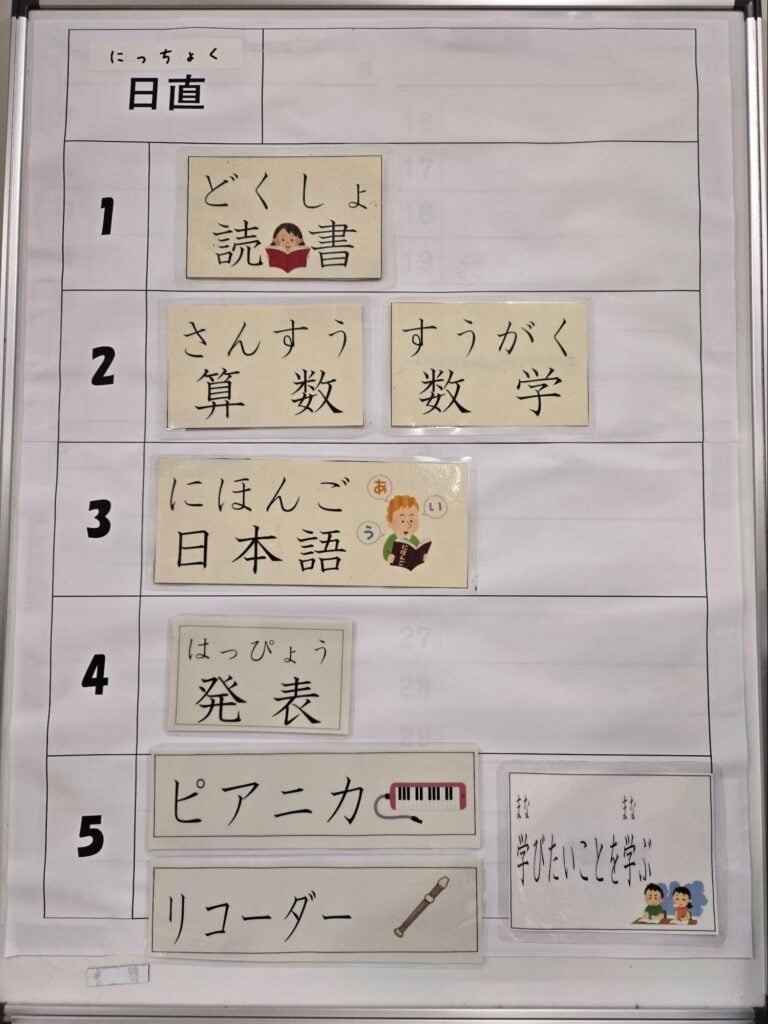 にっちょく
日直
1
どくしょ
読書
2
さんすう
算数
すうがく
数学
3
にほんご
日本語
あ
い
う
にほんご
4
はっぴょう
発表
5
ピアニカ
リコーダー
まな まな
学びたいことを学ぶ
16
17
18
19
27
28
29